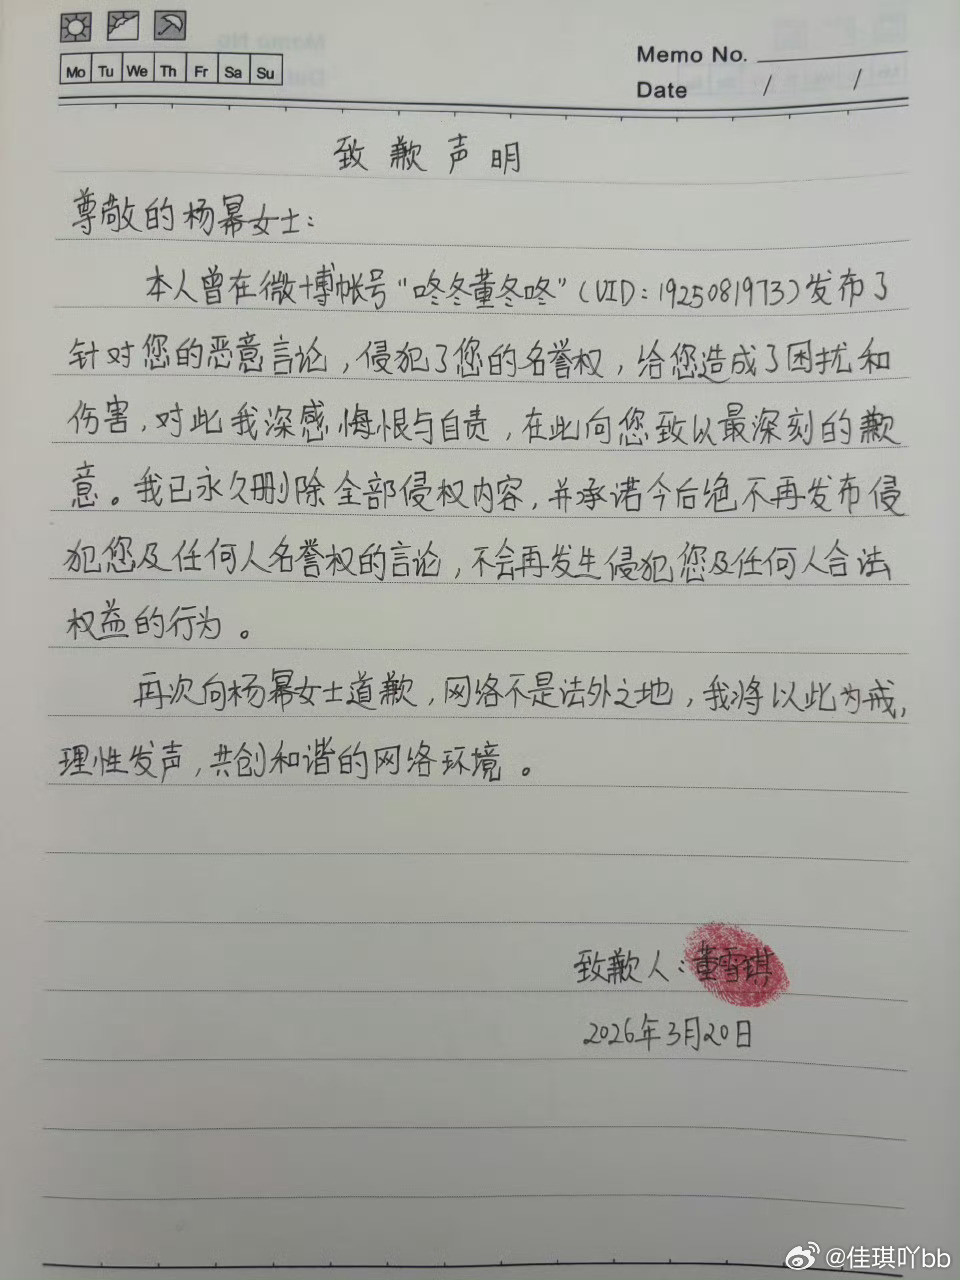 Mo Tu We Th Fr Sa Su
Memo No.
Date / /
致歉声明
尊敬的杨幂女士：
本人曾在微博帐号“咚冬董冬咚”（UID：1925081973）发布了
针对您的恶意言论，侵犯了您的名誉权，给您造成了困扰和
伤害，对此我深感悔恨与自责，在此向您致以最深刻的歉
意。我已永久删除全部侵权内容，并承诺今后绝不再发布侵
犯您及任何人名誉权的言论，不会再发生侵犯您及任何人合法
权益的行为。
再次向杨幂女士道歉，网络不是法外之地，我将以此为戒，
理性发声，共创和谐的网络环境。
致歉人：董雪琪
2026年3月20日
@佳琪吖bb